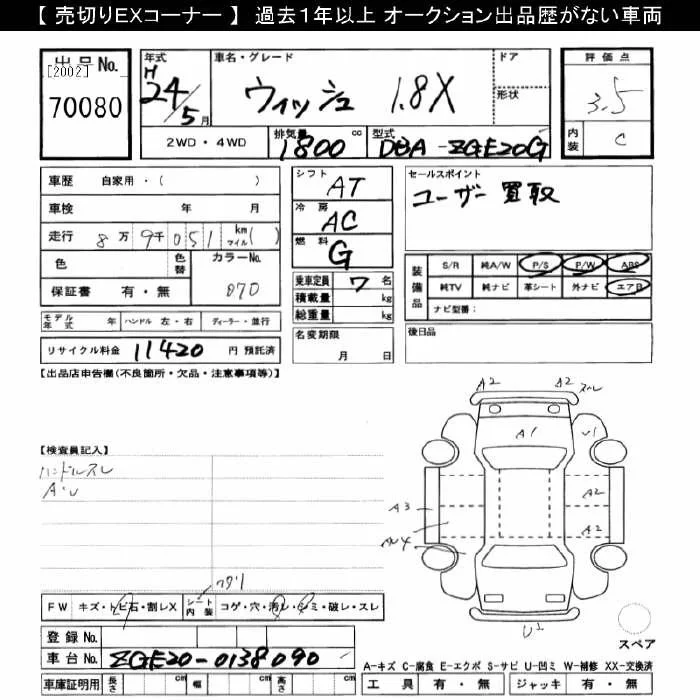 【 売切りEXコーナー 】 過去1年以上 オークション出品歴がない車両
出品No.
[2002]
70080
年式 車名・グレード ドア 評価点
H24/5月 ウィッシュ 1.8X 形状 3.5
2WD・4WD 排気量 1800 cc 型式 DBA-ZGE20G 内装 C
車歴 自家用・( )
車検 年 月
走行 8万9千051 km マイル( )
色 色替 カラーNo.
保証書 有・無 070
シフト AT
冷房 AC
燃料 G
乗車定員 7 名
積載量 kg
総重量 kg
セールスポイント
ユーザー買取
装備品 S/R 純A/W P/S P/W ABS
純TV 純ナビ 革シート 外ナビ エアB
ナビ型番:
モデル年式 年 ハンドル 左・右 ディーラー・並行
名変期限 月 日
後日品
リサイクル料金 11420 円 預託済
【出品店申告欄(不良箇所・欠品・注意事項等)】
A2 A2 スレ
A1 U1
【検査員記入】
ハンドルスレ
A・U
A2
A3
A2
AU4
FW キズ・トビ石・割レX シート内装 コゲ・穴・汚レ・シミ・破レ・スレ
登録No.
車台No. ZGE20-0138090
スペア
A-キズ C-腐食 E-エクボ S-サビ U-凹ミ W-補修 XX-交換済
車庫証明用 長さ cm 幅 cm 高さ cm 工具 有・無 ジャッキ 有・無